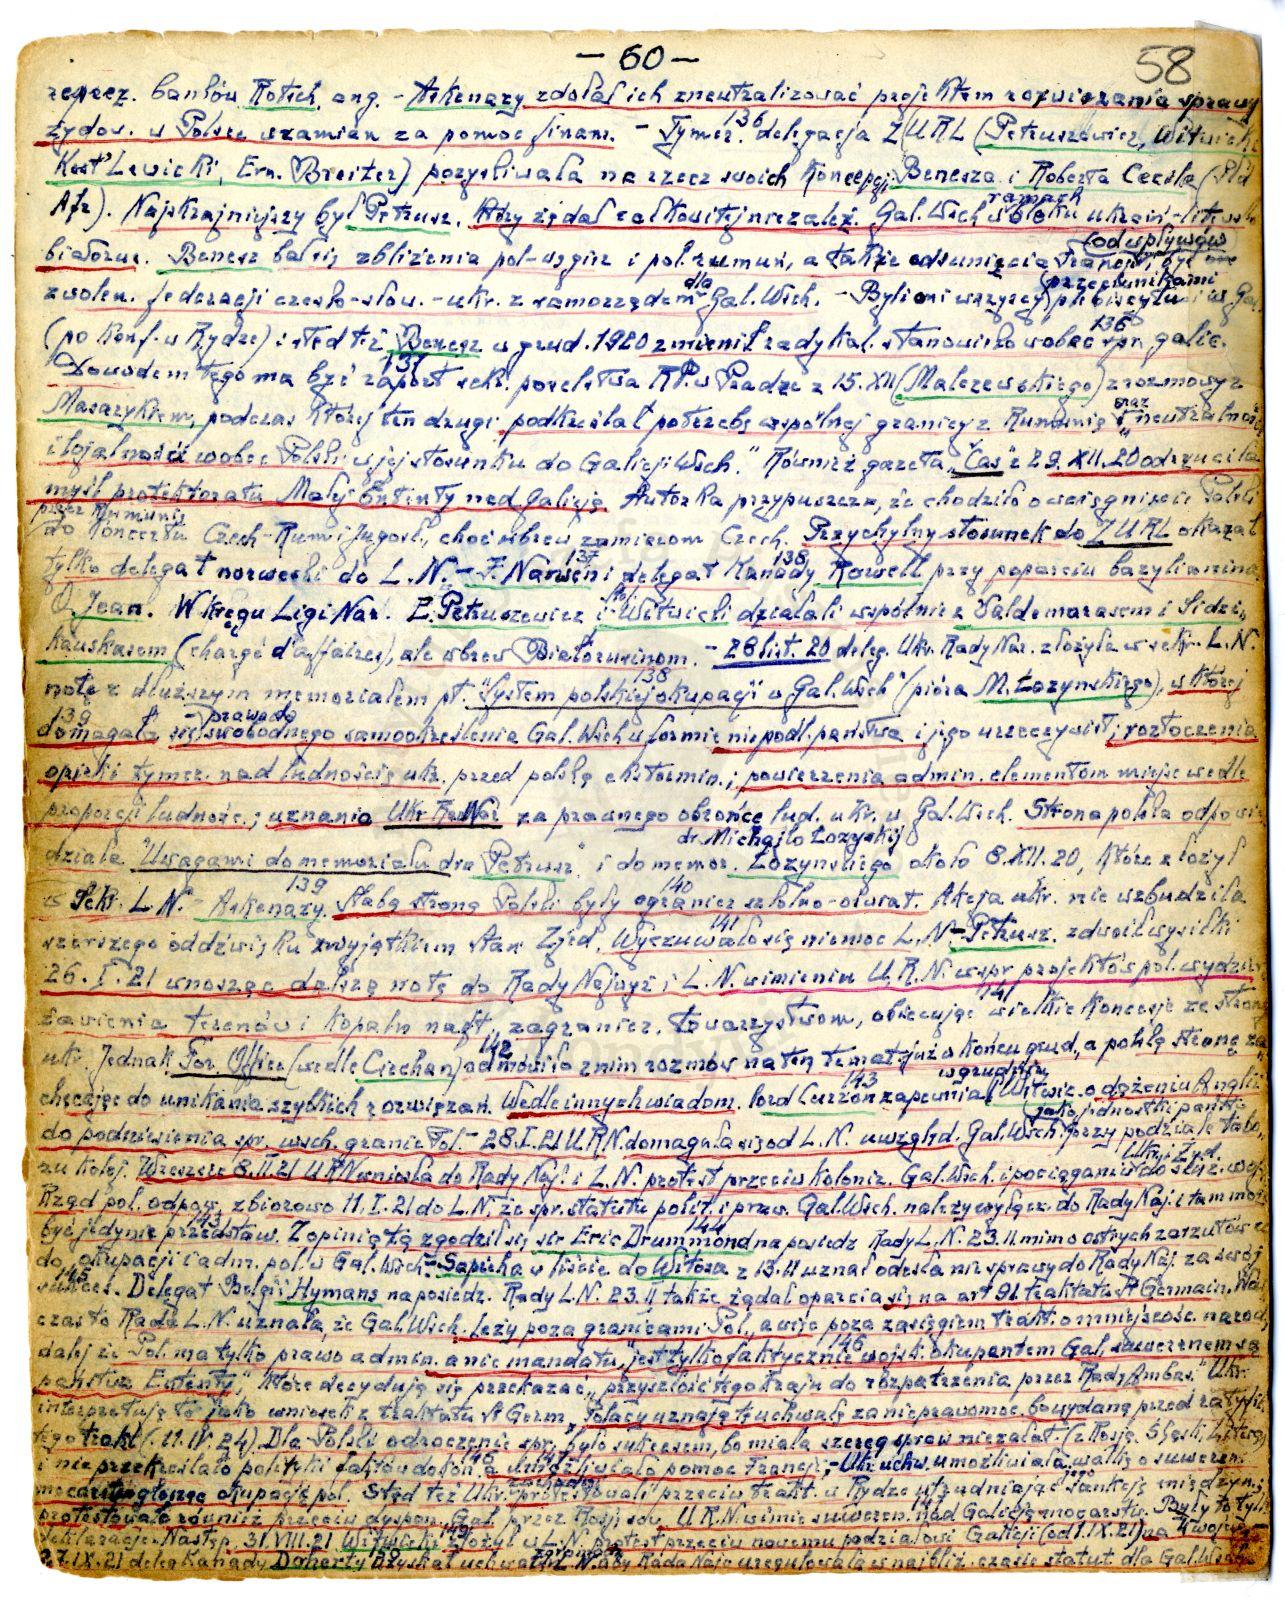 — 60 —
58
reprez. banków Rotsch. ang. – Askenazy zdołał ich zneutralizować projektem rozwiązania sprawy
żydow. w Polsce wzamian za pomoc finans. – Tymcz. 136 delegacja ZURL (Petruszewicz, Witwicki
Kost' Lewicki, Ern. Breiter) pozyskiwała na rzecz swoich koncepcji Benesza i Roberta Cecila (Płd
Afr). Najskrajniejszy był Petrusz., który żądał całkowitej niezależ. Gal. Wsch w ramach bloku ukraiń-litewsko
białorus. Benesz bał się zbliżenia pol-węgier i pol. rumuń, a także odsunięcia Francji (od wpływów był
zwolen. federacji czesko-słow.-ukr. z samorządem dla Gal. Wsch. – Byli oni wszyscy przeciwnikami plebiscytu w Gal
(po Konf. w Rydze) i stąd też Benesz w grud. 1920 zmienił radykal. stanowisko wobec spr. galic. 136
Dowodem tego ma być 137 raport sekr. poselstwa RP. w Pradze z 15. XII (Malczewskiego) z rozmowy z
Masarykiem, podczas której ten drugi podkreślał potrzebę wspólnej granicy z Rumunią oraz "neutralność
i lojalność wobec Polski w jej stosunku do Galicji Wsch." Również gazeta "Čas" z 29. XII. 20 odrzuciła
myśl protektoratu Małej Ententy nad Galicją. Autorka przypuszcza, że chodziło o wciągnięcie Polski
przez Rumunię
do Koncertu Czech-Rum i Jugosł., choć wbrew zamierzom Czech. Przychylny stosunek do ZURL okazał
tylko delegat norweski do L. N. – F. Nansen 137 i delegat Kanady 138 Rowell przy poparciu bazylianina
O Jean. W kręgu Ligi Nar. E. Petruszewicz i Witwicki działali wspólnie z Valdemarasem i Sidzi
kauskasem (chargé d'affaires), ale wbrew Białorusinom. – 28 list. 20 deleg. Ukr. Rady Nar. złożyła w sekr. L. N.
notę z dłuższym memoriałem pt. "System polskiej okupacji w Gal. Wsch" 138 (pióra M. Łozynskiego), w której
139 domagała się prawa do swobodnego samookreślenia Gal. Wsch w formie niepodl. państwa i jego urzeczywist.; roztoczenia
opieki tymcz. nad ludnością ukr. przed polską ekstermin.; powierzenia admin. elementom miejsc wedle
proporcji ludnośc.; uznania Ukr Rad Nar za prawnego obrońcę lud. ukr. w Gal. Wsch. Strona polska odpowie
działa "Uwagami do memoriału dra Petrusz" i do memor. dr. Michajło Łozyskij Łozynskiego około 8. XII. 20, które złożył
w Sekr. L. N. – Askenazy 139. Słabą stroną Polski były ogranicz szkolno-oświat. 140 Akcja ukr. nie wzbudziła
szerszego oddźwięku z wyjątkiem Stan. Zjed. Wyczuwało się niemoc L. N. 141 – Petrusz. zdwoił wysiłki
26. I. 21 wnosząc dalszą notę do Rady Najwyż i L. N. w imieniu U. R. N. w spr. projektów pol. wydzier
żawienia terenów i kopalń naft., zagranicz. towarzystwom, obiecując 141 wielkie koncesje ze strony
ukr. Jednak For. Office (wedle Ciechan) 142 odmówiło z nim rozmów na ten temat już w końcu grud., a polską stronę za
chęcając do unikania szybkich rozwiązań. Wedle innych wiadom. lord Curzon 143 zapewniał w grudniu Witwic. o dążeniu Anglii
do podniesienia spr. wsch. granic Pol. – 28. I. 21 U. R. N. domagała się od L. N. uwzględ. Gal. Wsch. (jako jednostki państ. przy podziale tabo-
ru kolej. Wreszcie 8. II. 21 U R N wniosła do Rady Naj. i L. N. protest przeciw koloniz. Gal. Wsch. i pociąganiu Ukr. i Żyd. do służ. wojs.
Rząd pol. odpow. zbiorowo 11. I. 21 do L. N., że spr. statutu polit. i praw. Gal. Wsch. należy wyłącz. do Rady Naj. i tam może
być jedynie przedstaw. 143 Z opinią tą zgodził się sir Eric Drummond 144 na posiedz Rady L. N. 23. II. mimo ostrych zarzutów co
do okupacji i adm. pol. w Gal. Wsch. – Sapieha w liście do Witosa z 13. II uznał odesłanie sprawy do Rady Naj. za swój
145 sukces. Delegat Belgii Hymans na posiedz. Rady L. N. 23. II także żądał oparcia się na art 91. traktatu St Germain. Wów
czas to Rada L. N. uznała, że Gal. Wsch. leży poza granicami Pol., a więc poza zasięgiem trakt. o mniejszośc. narod.,
dalej że Pol. ma tylko prawo admin. a nie mandatu, "jest tylko faktycznie 146 wojsk. okupantem Gal., suwerenem są
państwa Ententy", które decydują się przekazać "przyszłość tego kraju do rozpatrzenia przez Radę Ambas." Ukr.
interpretują to jako wniosek z traktatu St Germ. Polacy uznają tę uchwałę za nieprawomoc. bo wydaną przed ratyfik.
tego trakt. (. 11. IV. 24). Dla Polski odroczenie spr. było sukcesem, bo miała szereg spraw niezałat. (z Rosją, Śląsk, Litwą)
i nie przekreślało polityki faktów dokon. a umożliwiało pomoc Francji; – Ukr. uchw. umożliwiała walkę o suweren.
mocarstw głosząc okupację pol. Stąd też Ukr. protestowali przeciw trakt. w Rydze utrudniając jego sankcję międzyn.;
protestowała również przeciw dyspon. Gal. przez Rosję sow. U. R. N. w imię suweren. nad Galicją mocarstw. 147 Były to tylko
deklaracje. Następ. 31. VIII. 21 Witwicki 149 złożył w L. N. protest przeciw nowemu podziałowi Galicji (od 1. IX. 21) na 4 wojew.
27. IX. 21 deleg Kanady Doherty uzyskał uchwałę L. N. aby Rada Najw uregulowała w najbliż. czasie statut dla Gal. Wsch